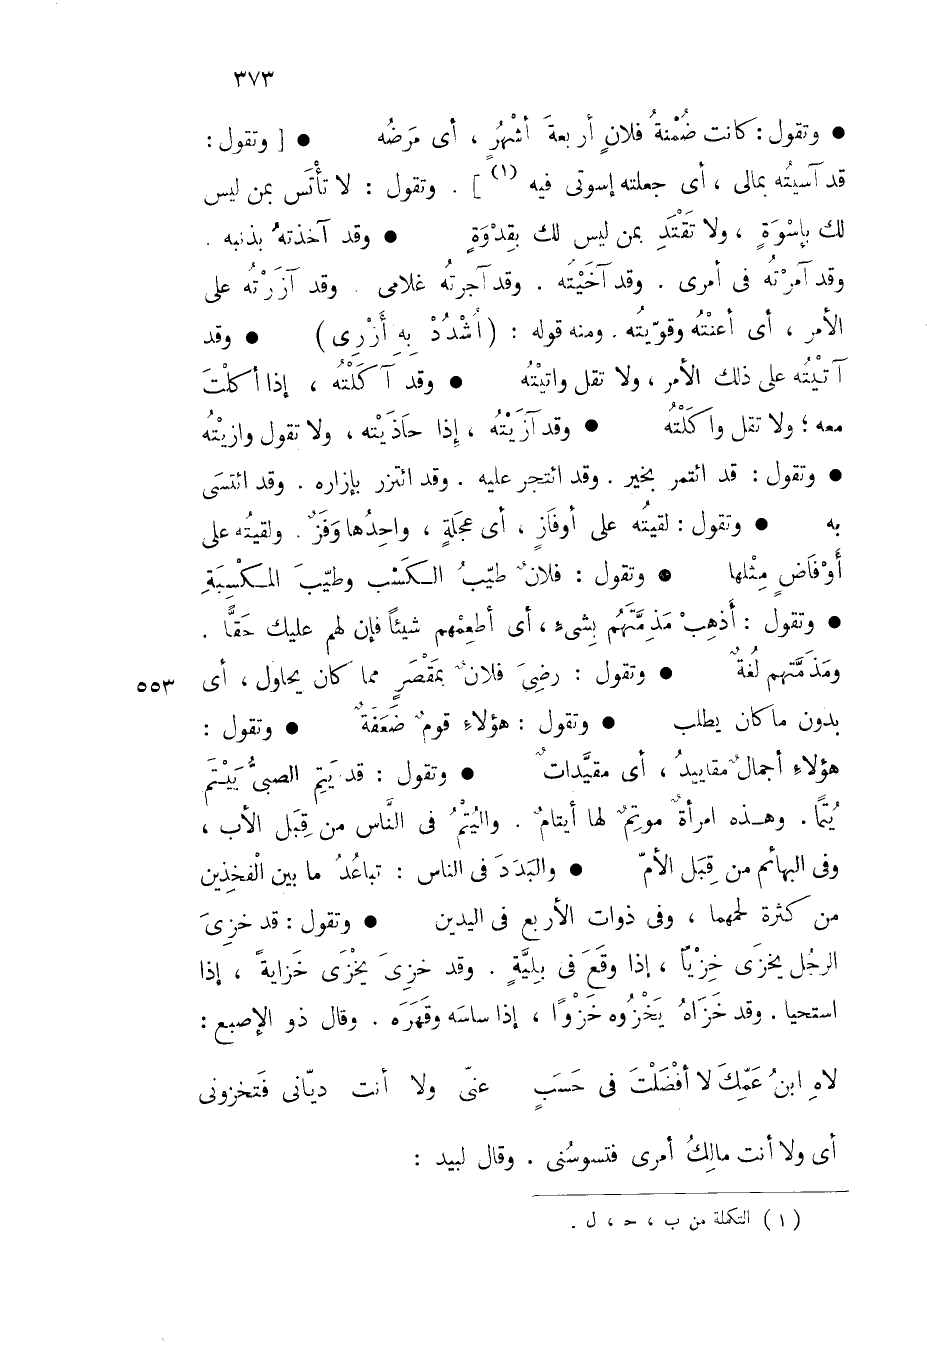 ٣٧٣
● وتقول : كانت ضُمْنةُ فلانٍ أربعةَ أشْهُرٍ ، أى مَرَضُه ● [ وتقول :
قد آسيتُه بمالى ، أى جعلته إسوتى فيه (١) ] . وتقول : لا تأْتَسِ بمن ليس
لك بإسْوَةٍ ، ولا تَقْتَدِ بمن ليس لك بقِدْوَةٍ ● وقد آخذتهُ بذنبه .
وقد آمرْتُه فى أمرى . وقد آخَيْتُه . وقد آجرتُه غلامى . وقد آزَرْتُه على
الأمر ، أى أعنْتُه وقوّيتُه . ومنه قوله : ( اُشْدُدْ بِهِ أَزْرِى ) ● وقد
آتَيْتُه على ذلك الأمر ، ولا تقل واتيْتُه ● وقد آكَلْتُه ، إذا أكلْتَ
معه ؛ ولا تقل واكَلْتُه ● وقد آزَيْتُه ، إذا حاَذَيْته ، ولا تقول وازيْتُه
● وتقول : قد ائتمر بخير . وقد ائتجر عليه . وقد ائتزر بإزاره . وقد ائتسَى
به ● وتقول : لقيتُه على أوفَازٍ ، أى عجَلةٍ ، واحِدُها وَفَزٌ . ولقيتُه على
أَوْفَاضٍ مِثْلها ● وتقول : فلانٌ طيّبُ الكَسْب وطيّبَ المكْسِبَةِ
● وتقول : أَذهِبْ مَذِمَّتَهُم بِشىءٍ ، أى أطعِمْهم شيئاً فإن لهم عليك حَقًّا .
ومَذَمَّتهم لُغةٌ ● وتقول : رضِىَ فلانٌ بمَقْصَرٍ مما كان يحاول ، أى ٥٥٣
بدون ما كان يطلب ● وتقول : هؤلاءِ قومٌ ضَعَفَةٌ ● وتقول :
هؤلاءِ أجمالٌ مقاييدُ ، أى مقيَّداتٌ ● وتقول : قد يَتِمَ الصبىُّ يَيْتَم
يُتْمًا . وهـذه امرأةٌ موتِمٌ لها أيتامٌ . واليُتْمُ فى النَّاس من قِبَل الأب ،
وفى البهائم من قِبَل الأمّ ● والبَدَدَ فى الناس : تباعُدُ ما بين الْفخذين
من كثرة لحمهما ، وفى ذوات الأربع فى اليدين ● وتقول : قد خزِىَ
الرجُل يخزَى خِزْيًا ، إذا وقَعَ فى بلِيَّةٍ . وقد خزِىَ يخْزَى خَزايةً ، إذا
استحيا . وقد خَزَاهُ يَخْزُوه خَزْوًا ، إذا ساسَه وقَهَرَه . وقال ذو الإصبع :
لاهِ ابنُ عَمِّكَ لا أفْضَلْتَ فى حَسَبٍ عنّى ولا أنت ديّانى فَتخزونى
أى ولا أنت مالِكُ أمرى فتسوسُنى . وقال لبيد :
(١) التكملة من ب ، حـ ، ل .